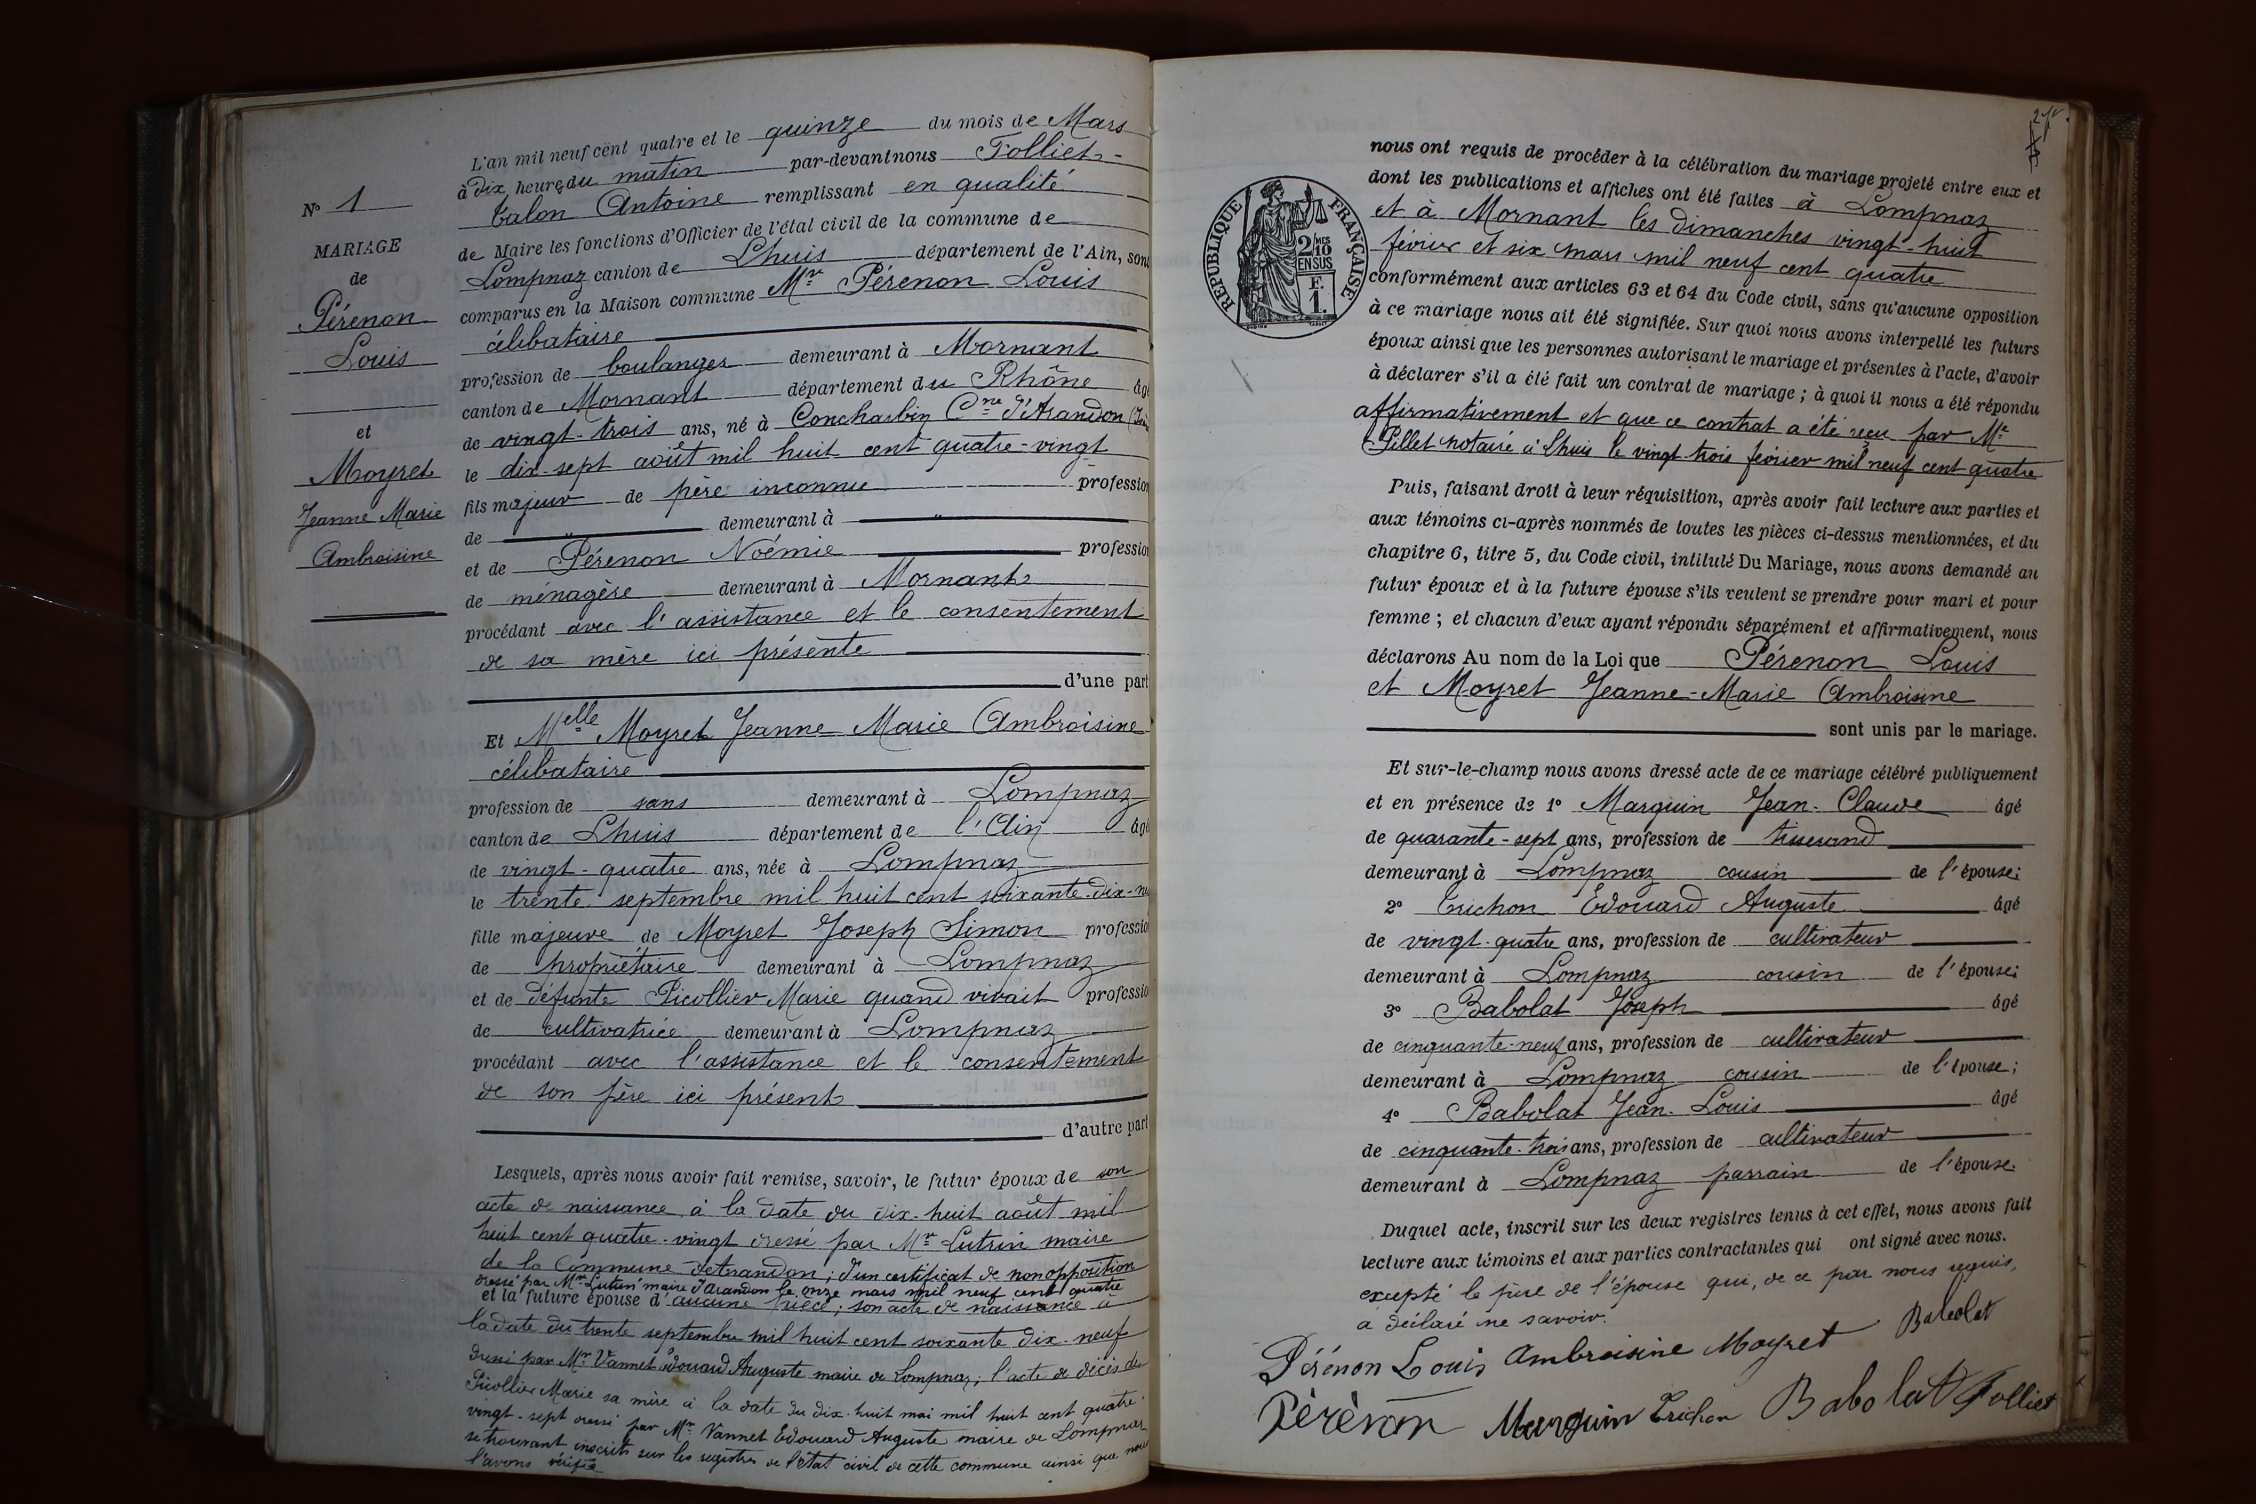 N° 1
MARIAGE
de
Pérenon
Louis
et
Moyret
Jeanne Marie
Ambroisine
L'an mil neuf cent quatre et le quinze du mois de Mars
à dix heures du matin par-devant nous Tolliet-
Calon Antoine remplissant en qualité
de Maire les fonctions d'Officier de l'état civil de la commune de
Lompnaz canton de Lhuis département de l'Ain, sont
comparus en la Maison commune Mr Pérenon Louis
célibataire
profession de boulanger demeurant à Mornant
canton de Mornant département du Rhône âgé
de vingt-trois ans, né à Concharbin Cne d'Arandon
le dix-sept août mil huit cent quatre-vingt
fils majeur de père inconnu profession
de " demeurant à "
et de Pérenon Noémie profession
de ménagère demeurant à Mornant
procédant avec l'assistance et le consentement
de sa mère ici présente
d'une part
Et Melle Moyret Jeanne Marie Ambroisine
célibataire
profession de sans demeurant à Lompnaz
canton de Lhuis département de l'Ain âgé
de vingt-quatre ans, née à Lompnaz
le trente septembre mil huit cent soixante-dix-ne
fille majeure de Moyret Joseph Simon professio
de propriétaire demeurant à Lompnaz
et de défunte Picollier Marie quand vivait professio
de cultivatrice demeurant à Lompnaz
procédant avec l'assistance et le consentement
de son père ici présent
d'autre part
Lesquels, après nous avoir fait remise, savoir, le futur époux de son
acte de naissance à la date du dix-huit août mil
huit cent quatre-vingt dressé par Mr Lutrin maire
de la Commune d'Arandon; d'un certificat de non opposition
dressé par Mr Lutrin maire d'Arandon le onze mars mil neuf cent quatre
et la future épouse d'aucune pièce; son acte de naissance à
la date du trente septembre mil huit cent soixante dix-neuf
dressé par Mr Vannet Edouard Auguste maire de Lompnaz; l'acte de décès de
Picollier Marie sa mère à la date du dix-huit mai mil huit cent quatre-
vingt-sept dressé par Mr Vannet Edouard Auguste maire de Lompnaz
se trouvant inscrits sur les registres de l'état civil de cette commune ainsi que nous
l'avons vérifié
RÉPUBLIQUE FRANÇAISE
2/10MES
EN SUS
F.
1.
nous ont requis de procéder à la célébration du mariage projeté entre eux et
dont les publications et affiches ont été faites à Lompnaz
et à Mornant les dimanches vingt-huit
février et six mars mil neuf cent quatre
conformément aux articles 63 et 64 du Code civil, sans qu'aucune opposition
à ce mariage nous ait été signifiée. Sur quoi nous avons interpellé les futurs
époux ainsi que les personnes autorisant le mariage et présentes à l'acte, d'avoir
à déclarer s'il a été fait un contrat de mariage; à quoi il nous a été répondu
affirmativement et que ce contrat a été reçu par Me
Pillet notaire à Lhuis le vingt-trois février mil neuf cent quatre
Puis, faisant droit à leur réquisition, après avoir fait lecture aux parties et
aux témoins ci-après nommés de toutes les pièces ci-dessus mentionnées, et du
chapitre 6, titre 5, du Code civil, intitulé Du Mariage, nous avons demandé au
futur époux et à la future épouse s'ils veulent se prendre pour mari et pour
femme; et chacun d'eux ayant répondu séparément et affirmativement, nous
déclarons Au nom de la Loi que Pérenon Louis
et Moyret Jeanne-Marie Ambroisine
sont unis par le mariage.
Et sur-le-champ nous avons dressé acte de ce mariage célébré publiquement
et en présence de 1° Marguin Jean-Claude âgé
de quarante-sept ans, profession de tisserand
demeurant à Lompnaz cousin de l'épouse;
2° Trichon Edouard Auguste âgé
de vingt-quatre ans, profession de cultivateur
demeurant à Lompnaz cousin de l'épouse;
3° Babolat Joseph âgé
de cinquante-neuf ans, profession de cultivateur
demeurant à Lompnaz cousin de l'épouse;
4° Babolat Jean-Louis âgé
de cinquante-trois ans, profession de cultivateur
demeurant à Lompnaz parrain de l'épouse.
Duquel acte, inscrit sur les deux registres tenus à cet effet, nous avons fait
lecture aux témoins et aux parties contractantes qui ont signé avec nous.
excepté le père de l'épouse qui, de ce par nous requis,
a déclaré ne savoir.
Pérénon Louis Ambroisine Moyret Babolat
Pérènon Marguin Trichon Babolat Tolliet